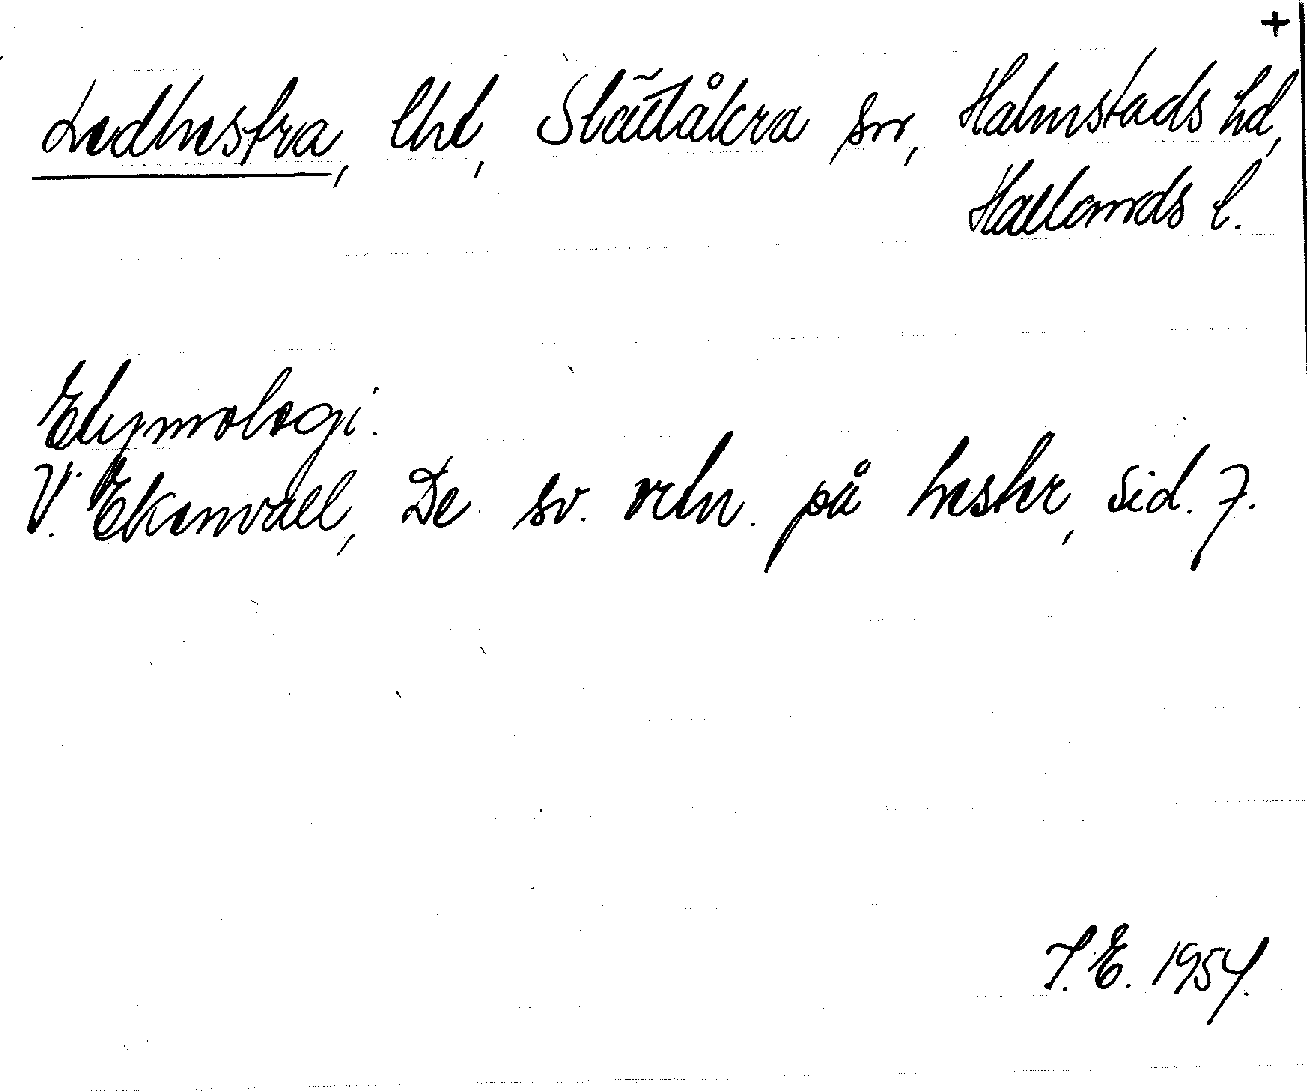 +
Ledhestra, lht, Slättåkra sn, Halmstads hd,
Hallands l.
Etymologi.
V. Ekenvall, De sv. ortn. på hester, sid. 7.
I.E. 1954.